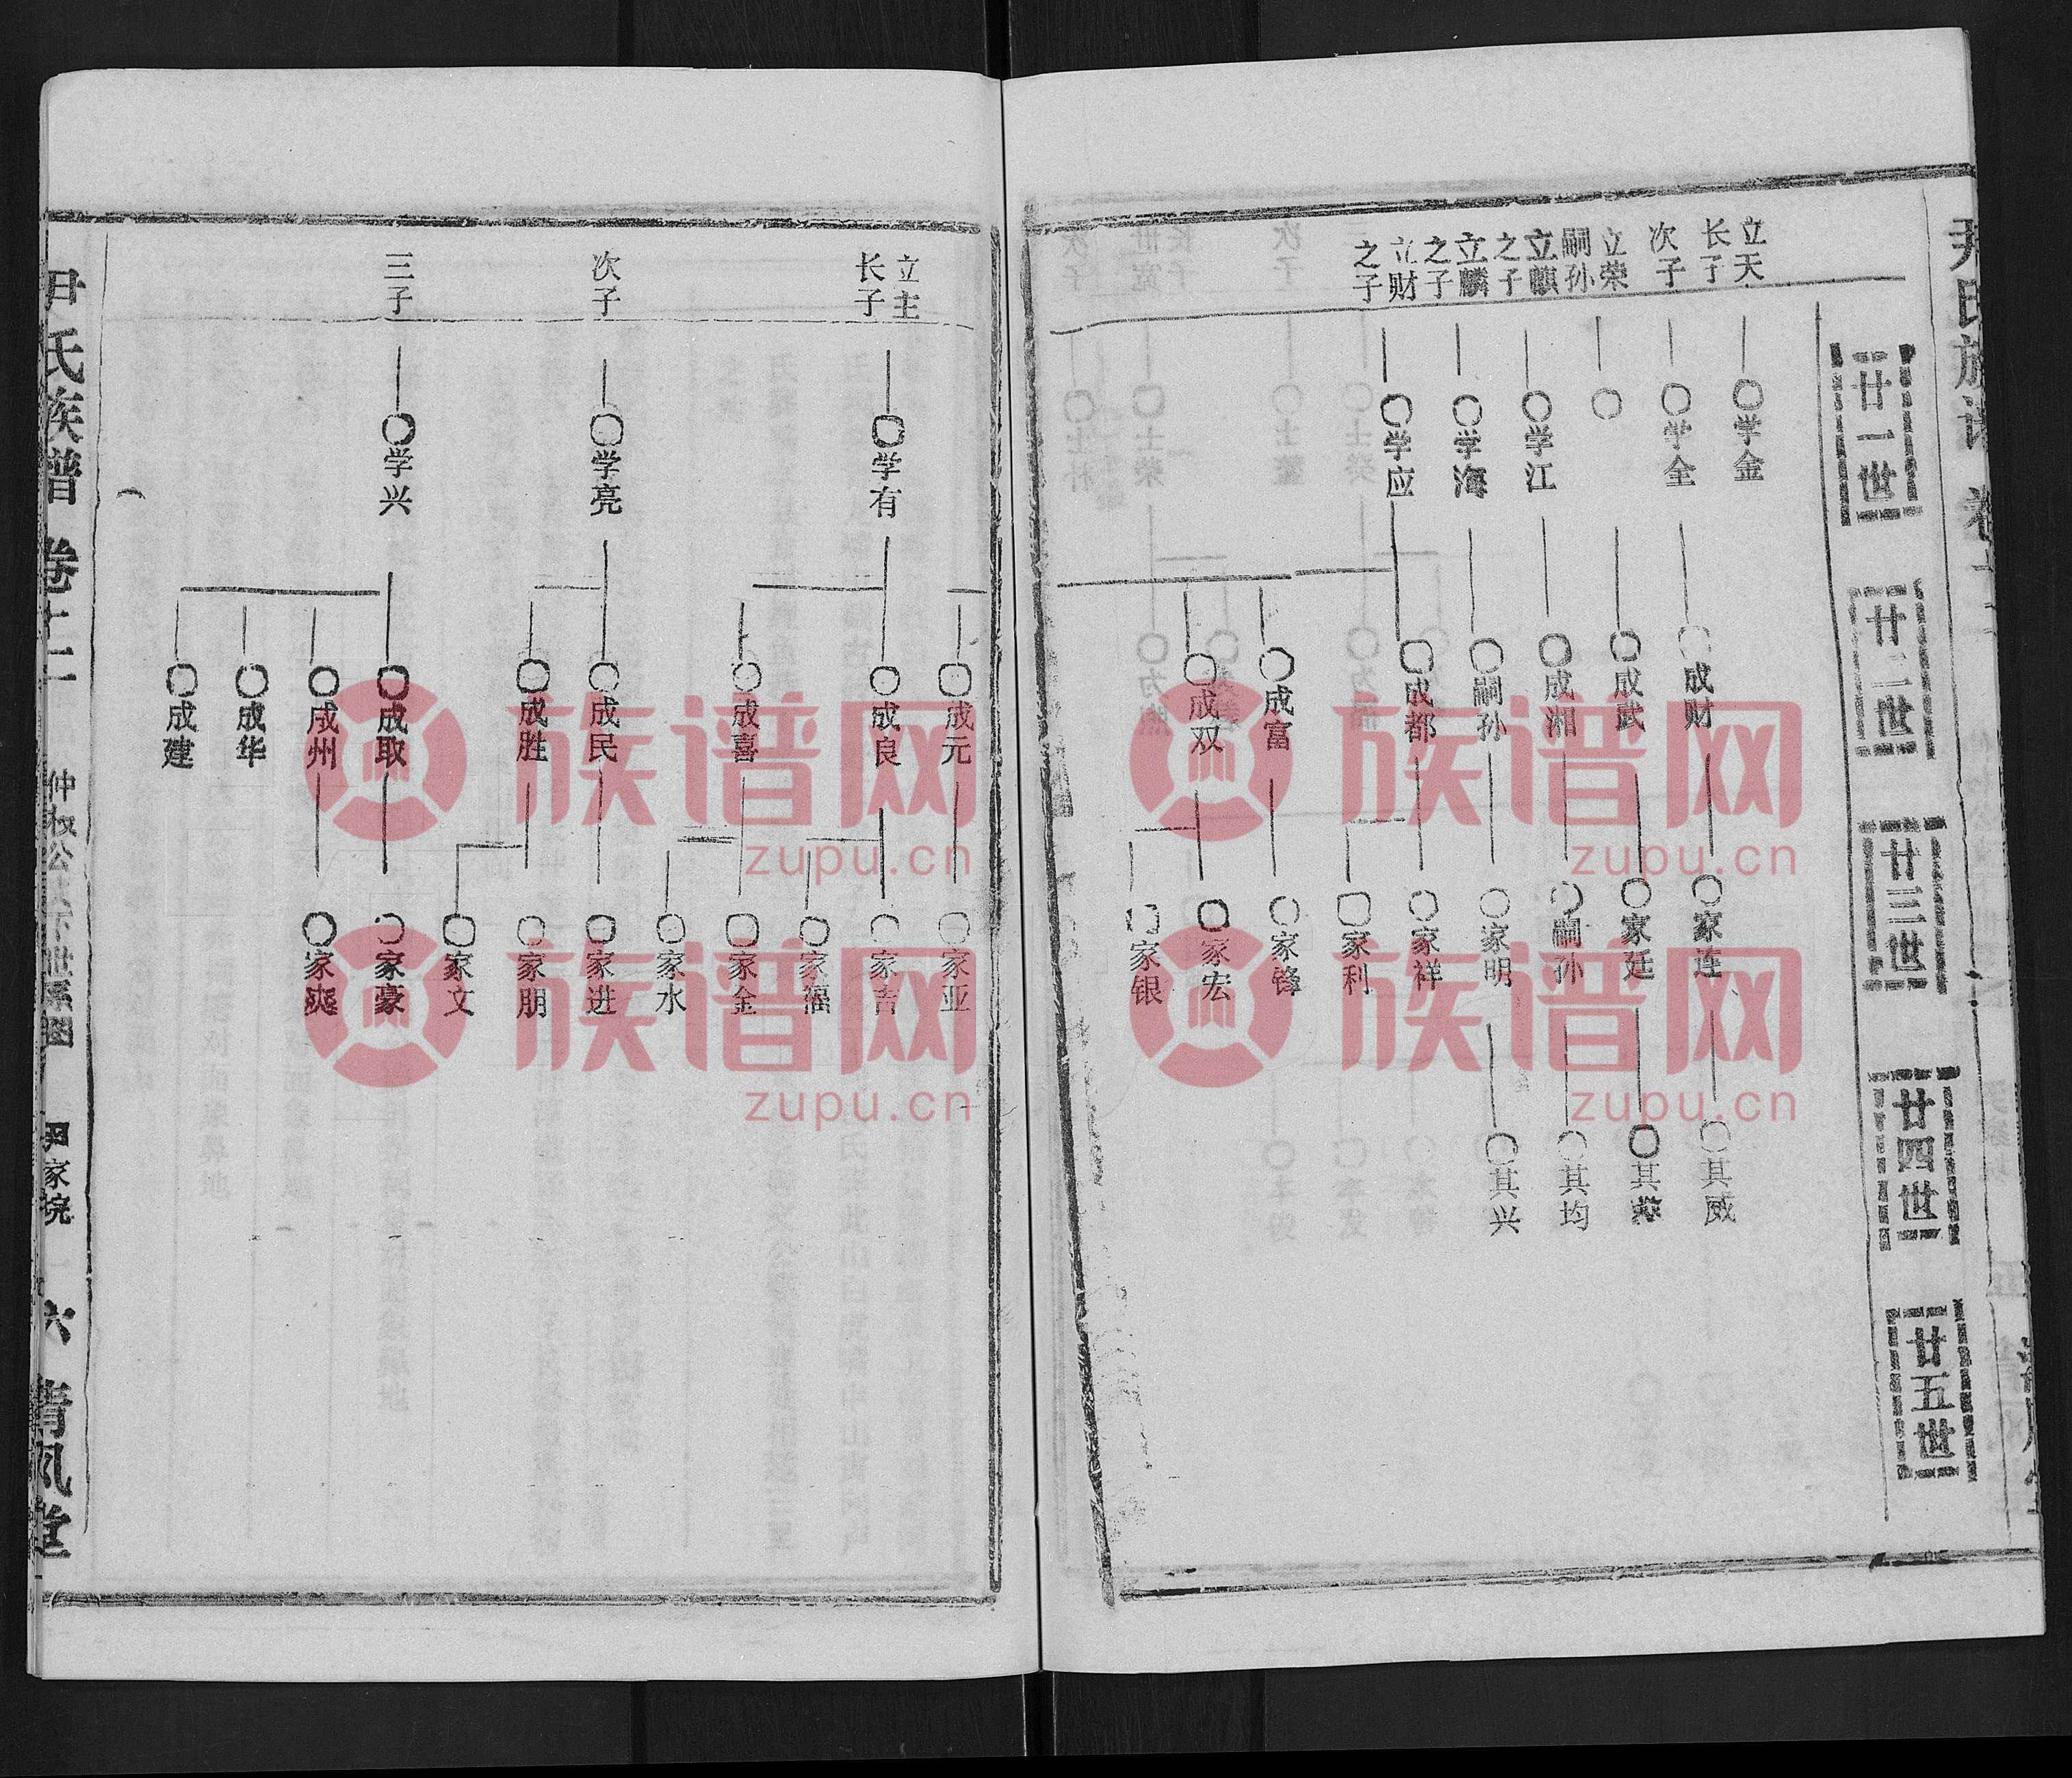 尹氏族谱
廿一世
廿二世
廿三世
廿四世
廿五世
立天
长子
学金
成财
家连
其威
次子
学全
成武
家廷
其
立荣
嗣孙
成湘
嗣孙
其均
立麒
之子
学江
嗣孙
家明
其兴
立麟
之子
学海
成都
家祥
家利
立财
之子
学应
成富
家锋
成双
家宏
家银
成元
家亚
立主
长子
学有
成良
家吉
家福
成喜
家金
家水
次子
学亮
成民
家进
家朋
成胜
家文
三子
学兴
成取
家豪
成州
家爽
成华
成建
尹氏族谱
卷十二
仲权公下世系图
尹家院
六
清风堂
族谱网
zupu.cn
族谱网
zupu.cn
族谱网
zupu.cn
族谱网
zupu.cn